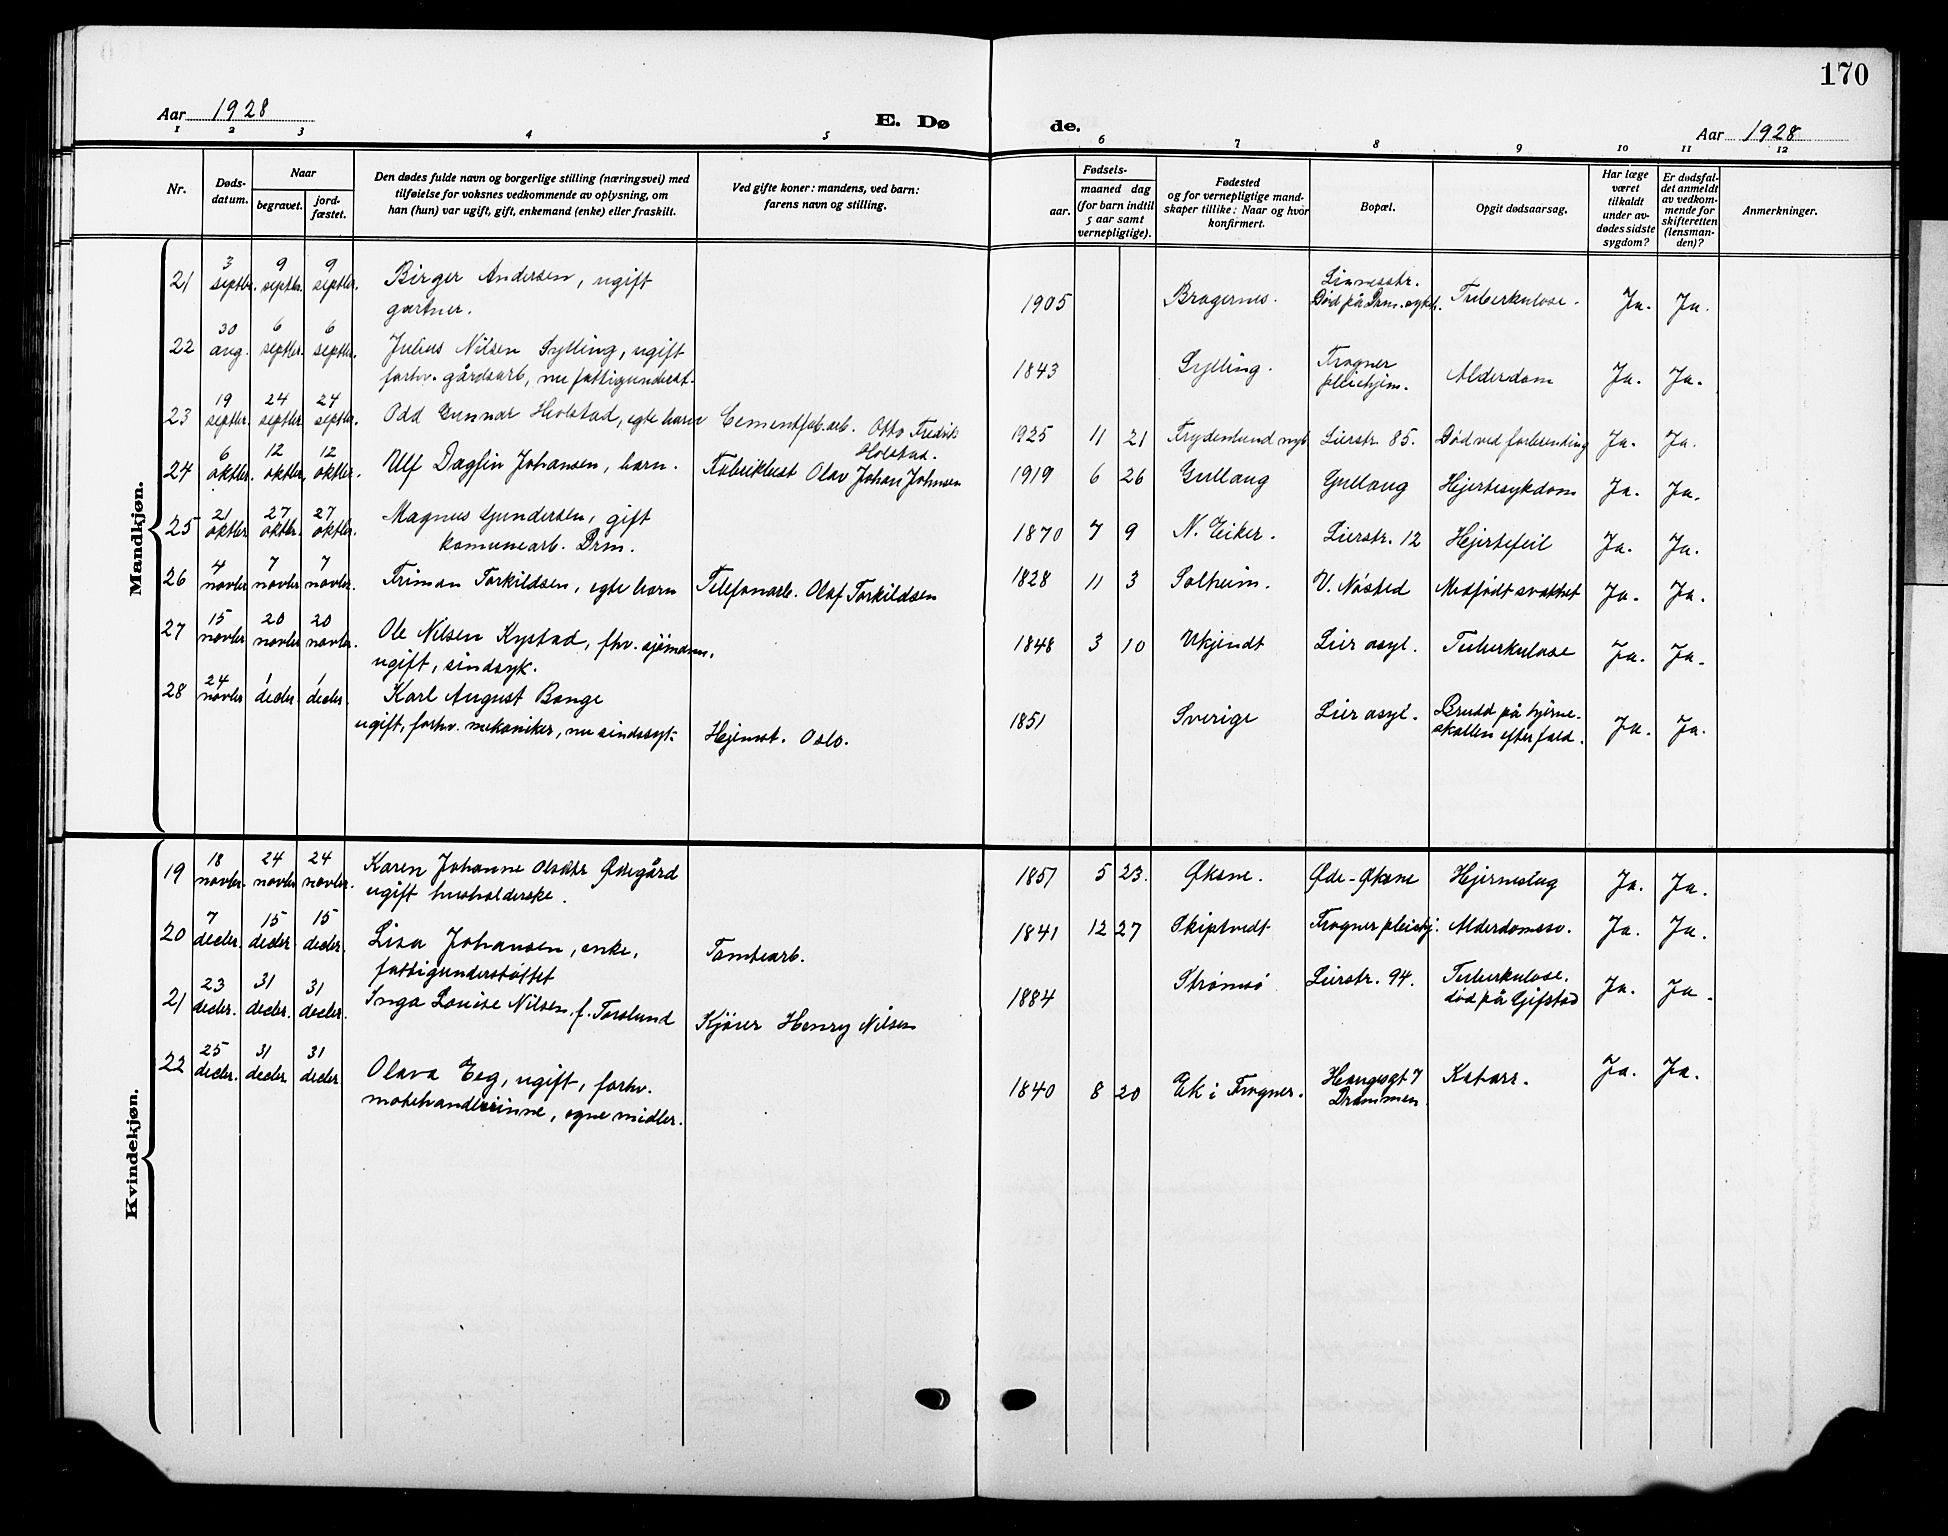 170
Aar 1928
E. Dø de.
Aar 1928
1 2 3 4 5 6 7 8 9 10 11 12
Nr.
Døds-
datum.
Naar
begravet.
jord-
fæstet.
Den dødes fulde navn og borgerlige stilling (næringsvei) med
tilføielse for voksnes vedkommende av oplysning, om
han (hun) var ugift, gift, enkemand (enke) eller fraskilt.
Ved gifte koner: mandens, ved barn:
farens navn og stilling.
Fødsels-
aar.
maaned dag
(for barn indtil
5 aar samt
vernepligtige).
Fødested
og for vernepligtige mand-
skaper tillike: Naar og hvor
konfirmert.
Bopæl.
Opgit dødsaarsag.
Har læge
været
tilkaldt
under av-
dødes sidste
sygdom?
Er dødsfal-
det anmeldt
av vedkom-
mende for
skifteretten
(lensman-
den)?
Anmerkninger.
Mandkjøn.
21 3 septbr. 9 septbr. 9 septbr. Birger Andersen, ugift
gartner.
1905 Bragernes. Død på Drm. sykeh. Tuberkulose. Ja. Ja.
22 30 aug. 6 septbr. 6 septbr. Julius Nilsen Sylling, ugift
forhv. gårdsarb, nu fattigunderst.
1843 Sylling. Frogner
pleiehjem. Alderdom Ja. Ja.
23 19 septbr. 24 septbr. 24 septbr. Odd Gunnar Holstad, egte barn Cementfab.arb. Otto Fredrik
Holstad.
1925 11 21 Frydenlund nyb Lierstr. 85. Død ved forbrending Ja. Ja.
24 6 oktbr. 12 oktbr. 12 oktbr. Ulf Dagfin Johansen, barn. Fabrikbest Olav Johan Johnsen
1919 6 26 Gullaug Gullaug Hjertesykdom Ja. Ja.
25 21 oktbr 27 oktbr. 27 oktbr. Magnus Gundersen, gift
komunearb. Drm.
1870 7 9 N. Eiker. Lierstr. 12 Hjertefeil Ja. Ja.
26 4 novbr 7 novbr 7 novbr. Friman Torkildsen, egte barn Telefonarb. Olaf Torkildsen
1828 11 3 Solheim. V. Nøsted Medfødt svakhet Ja. Ja.
27 15 novbr 20 novbr 20 novbr. Ole Nilsen Kystad, fhv. sjømann,
ugift, sindsyk.
1848 3 10 Ukjendt Lier asyl. Tuberkulose Ja. Ja.
28 24 novbr 1 decbr. 1 decbr. Karl August Bange
ugift, forhv. mekaniker, nu sindssyk Hejemst. Oslo.
1851 Sverige Lier asyl. Brudd på hjerne-
skallen efter fald. Ja. Ja.
Kvindekjøn.
19 18 novbr. 24 novbr 24 novbr. Karen Johanne Olsdtr Ødegård
ugift husholderske.
1851 5 23. Øksne. Øde-Øksne Hjerneslag Ja. Ja.
20 7 decbr. 15 decbr. 15 decbr. Lisa Johansen, enke,
fattigunderstøttet Tomtearb.
1841 12 27 Skiptvedt Frogner pleiehj. Alderdomssv. Ja. Ja.
21 23 decbr. 31 decbr. 31 decbr. Inga Louise Nilsen, f. Forslund Kjører Henry Nilsen
1884 Strømsø Lierstr. 94. Tuberkulose.
død på Gifstad Ja. Ja.
22 25 decbr. 31 decbr. 31 decbr Olava Eeg, ugift, forhv.
motehandlerinne, egne midler.
1840 8 20 Ek i Frogner. Haugesgt 7
Drammen. Katarr. Ja. Ja.